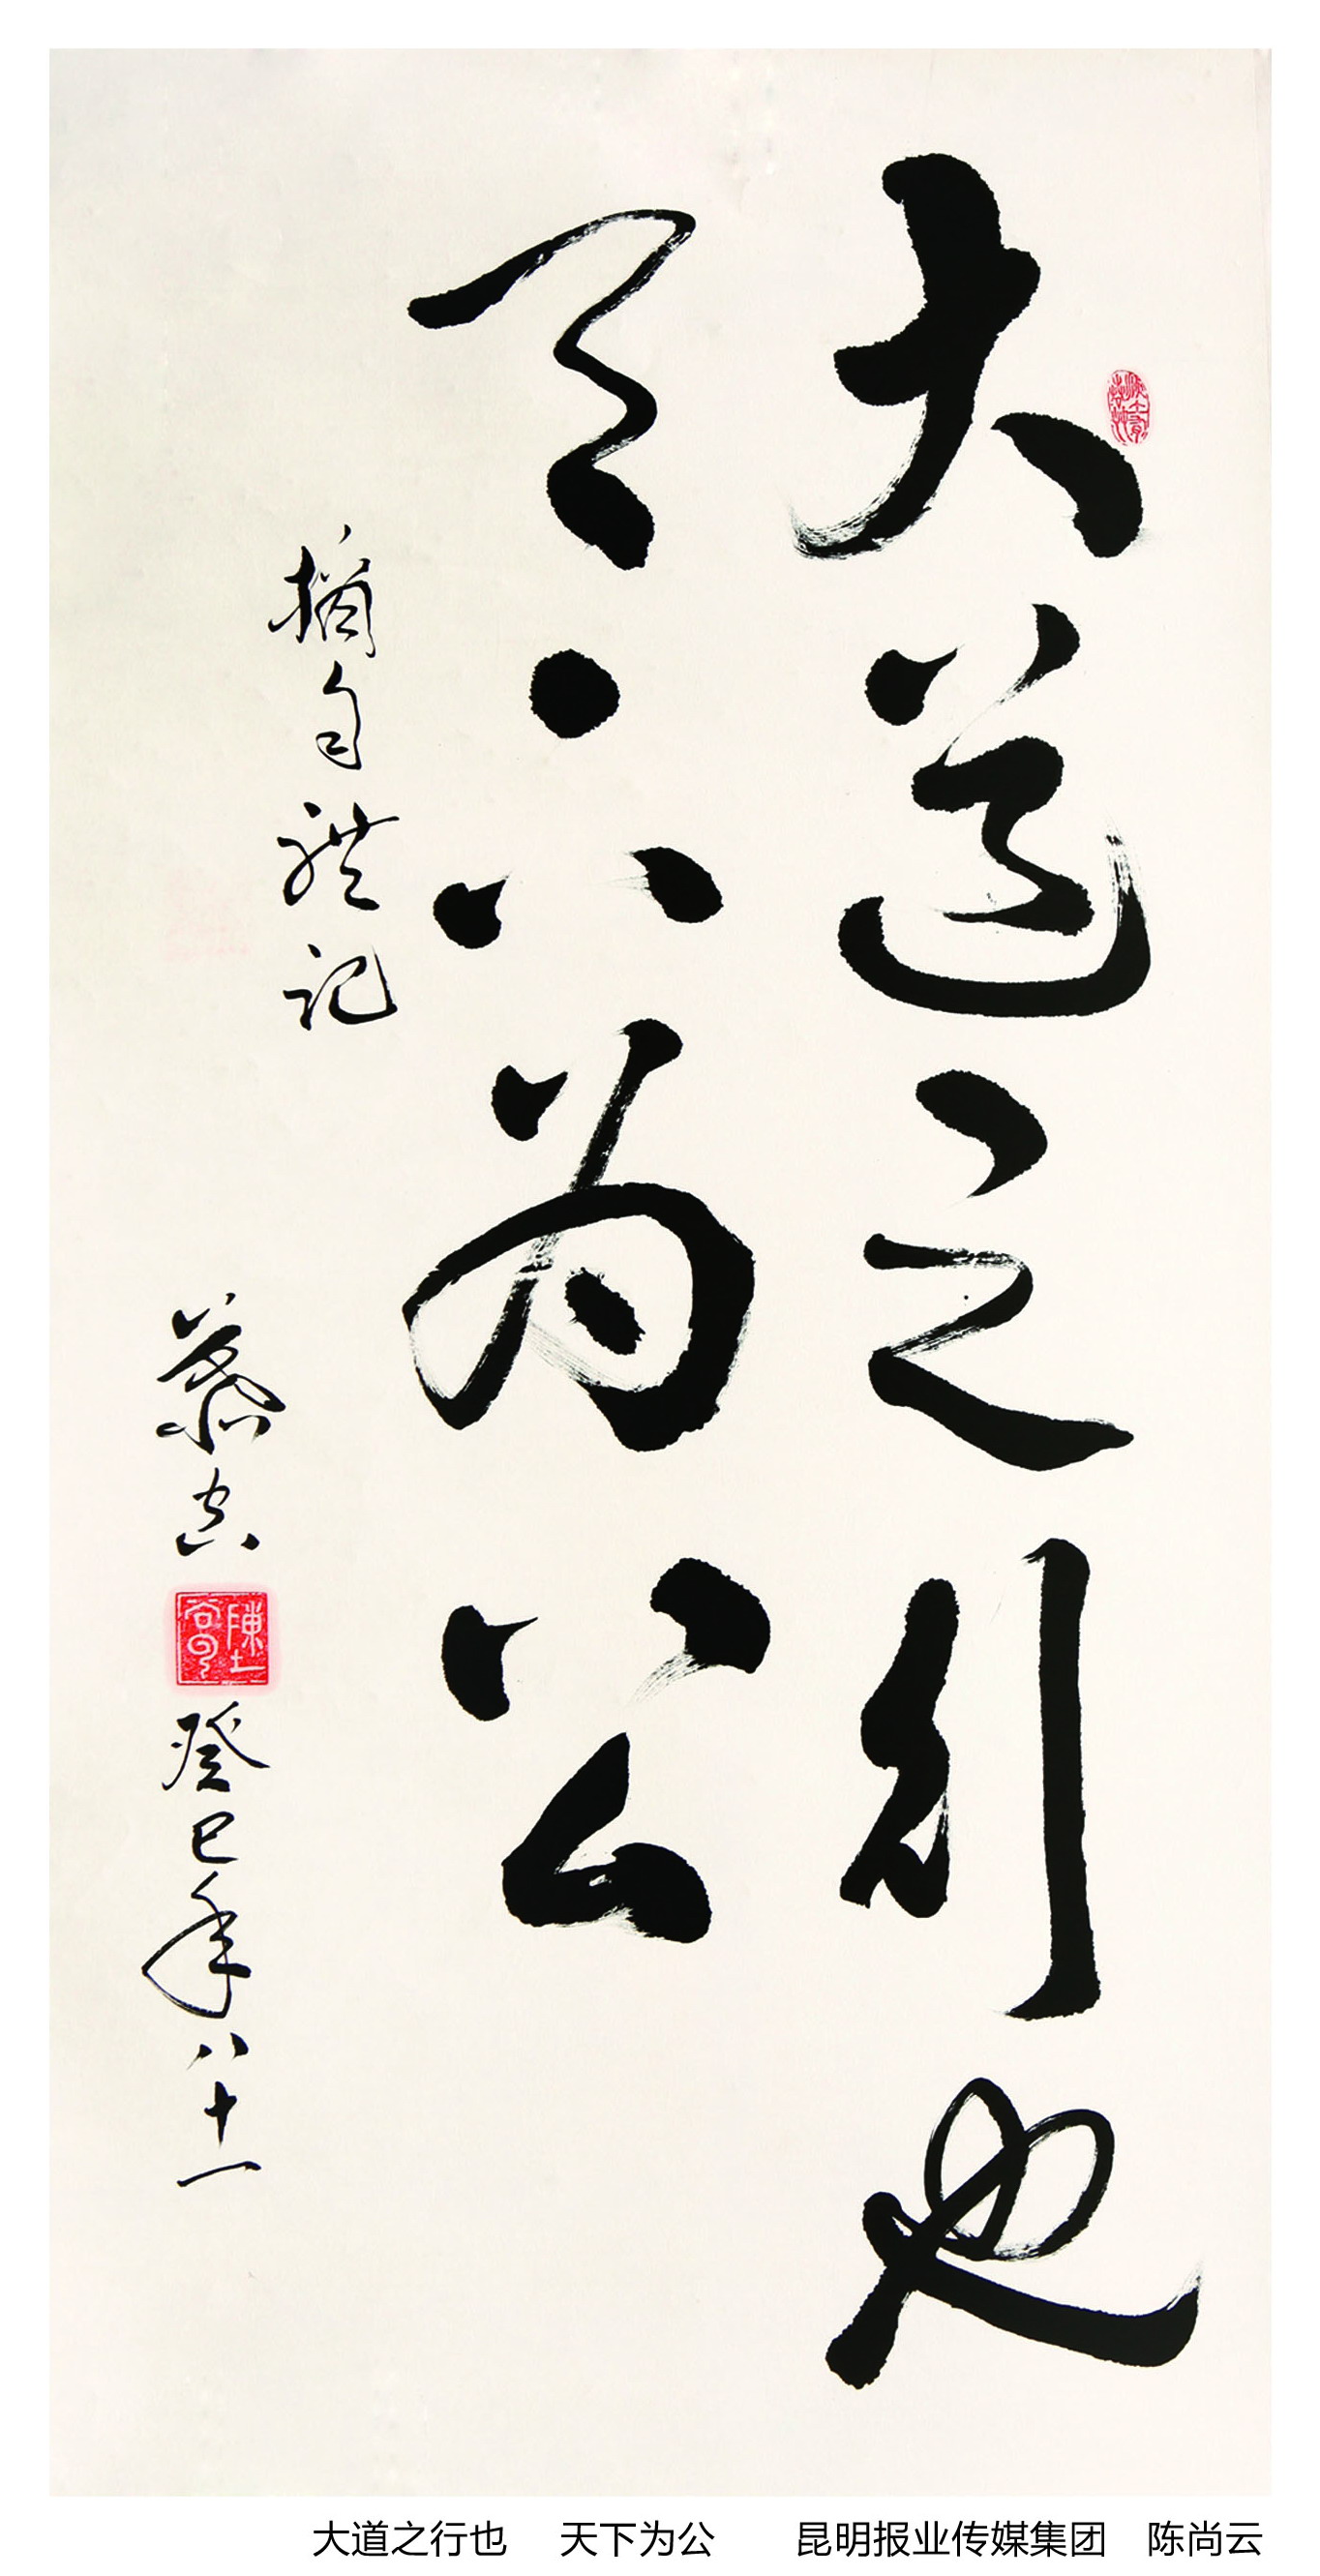 大道之行也
天下为公
摘自礼记
癸巳年八十一
大道之行也 天下为公 昆明报业传媒集团 陈尚云